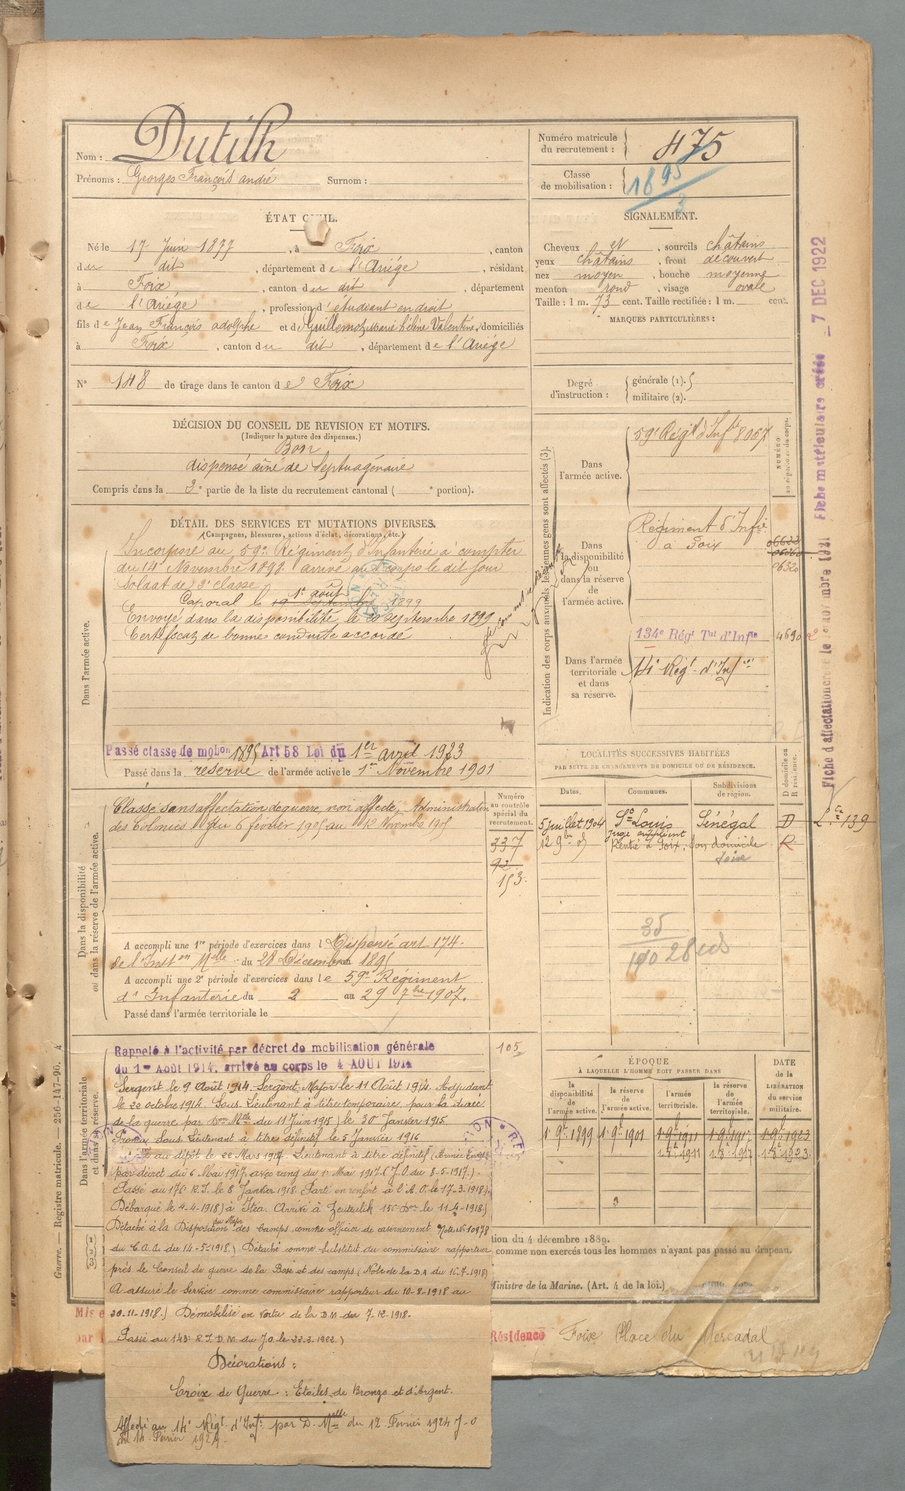 Nom : Dutilh
Prénoms : Georges François André Surnom :
Numéro matricule du recrutement : 475
Classe de mobilisation : 1895
ÉTAT CIVIL.
Né le 17 Juin 1877, à Foix, canton
du dit, département de l'Ariége, résidant
à Foix, canton du dit, département
de l'Ariége, profession d'étudiant en droit
fils de Jean François Adolphe et de Guillemot Marie Hélène Valentine, domiciliés
à Foix, canton du dit, département de l'Ariège
SIGNALEMENT.
Cheveux et, sourcils châtains
yeux châtains, front découvert
nez moyen, bouche moyenne
menton rond, visage ovale
Taille : 1 m. 73 cent. Taille rectifiée : 1 m. cent.
MARQUES PARTICULIÈRES :
N° 148 de tirage dans le canton de Foix
Degré d'instruction : générale (1). 5
militaire (2).
DÉCISION DU CONSEIL DE REVISION ET MOTIFS.
(Indiquer la nature des dispenses.)
Bon
dispensé aîné de Septuagénaire
Compris dans la 3e partie de la liste du recrutement cantonal ( e portion).
DÉTAIL DES SERVICES ET MUTATIONS DIVERSES.
(Campagnes, blessures, actions d'éclat, décorations, etc.)
Dans l'armée active.
Incorporé au 59e Régiment d'Infanterie à compter
du 14 Novembre 1898 arrivé au corps le dit jour
Soldat de 2e classe
Caporal le 1er août 1899
Envoyé dans la disponibilité le septembre 1899
Certificat de bonne conduite accordé
Passé classe de mobon 1895 Art 58 Loi du 1er avril 1923
Passé dans la réserve de l'armée active le 1er Novembre 1901
Indication des corps auxquels les jeunes gens sont affectés (3).
Dans l'armée active.
59e Régt d'Infie 8067
Dans la disponibilité ou dans la réserve de l'armée active.
Régiment d'Infie
à Foix
Dans l'armée territoriale et dans sa réserve.
134e Régt Tal d'Infie 4690
14e Régt d'Infie
LOCALITÉS SUCCESSIVES HABITÉES
PAR SUITE DE CHANGEMENTS DE DOMICILE OU DE RÉSIDENCE.
Dates. Communes. Subdivisions de région. D domicile ou R résidence.
5 juillet 1904 St Louis Sénégal D
Juge suppléant
12 9bre 05 Rentré à Foix, son domicile R
Foix
Dans la disponibilité ou dans la réserve de l'armée active.
Classe sans affectation de guerre, non affecté, Administration
des Colonies du 6 février 1905 au 12 Novembre 1905
Numéro au contrôle spécial du recrutement.
337
92
153
A accompli une 1re période d'exercices dans l Dispensé art 174
de l'Inston Mlle du 28 Décembre 1895
A accompli une 2e période d'exercices dans le 59e Régiment
d'Infanterie du 2 au 29 7bre 1907.
Passé dans l'armée territoriale le
105
35
190 28
Dans l'armée territoriale et dans sa réserve.
Rappelé à l'activité par décret de mobilisation générale
du 1er Août 1914, arrivé au corps le 4 AOUT 1914
Sergent le 9 Août 1914. Sergent Major le 11 Août 1914. Adjudant
le 20 octobre 1914. Sous Lieutenant à titre temporaire pour la durée
de la guerre par Don Mlle du 11 Juin 1915 30 Janvier 1915.
Promu Sous Lieutenant à titre définitif le 5 Janvier 1916
au dépôt le 22 Mars 1917. Lieutenant à titre définitif
par décret du 6 Mai 1917 avec rang du 1er Mai 1917 (J.O. du 8-5-1917).
Passé au 176e R.I. le 8 Janvier 1918. Parti en renfort à l'A.O. le 17-3-1918
Débarqué le 4-4-1918 à Itéa. Arrivé à Zeitenlik le 11-4-1918
Détaché à la Disposition du Major des Camps comme officier de casernement Note
du C.A.A. du 14-5-1918. Détaché comme Substitut du commissaire rapporteur
près le Conseil de guerre de la Base et des camps (Note de la D.A du 15-7-1918)
A assuré le Service comme commissaire rapporteur du 10-8-1918 au
20-11-1918. Démobilisé en vertu de la D.M du 7-12-1918.
Passé au 143e R.I.
Décorations :
Croix de Guerre : Etoiles de Bronze et d'Argent.
Affecté au 14e Régt d'Infie par D. Mlle du 12 Février 1924 J.O
du 14 Février 1924.
ÉPOQUE
À LAQUELLE L'HOMME DOIT PASSER DANS
la disponibilité de l'armée active. la réserve de l'armée active. l'armée territoriale. la réserve de l'armée territoriale.
DATE de la LIBÉRATION du service militaire.
1er 9bre 1899 1er 9bre 1901 1er 9bre 1911 1er 9bre 1917 1er 9bre 1923
tion du 4 décembre 1889.
comme non exercés tous les hommes n'ayant pas passé au drapeau.
Ministre de la Marine. (Art. 4 de la loi.)
Mis e
par l
Résidence Foix Place du Mercadal
Fiche matriculaire créée 7 DEC 1922
Guerre. — Registre matricule. — 256-147-96.